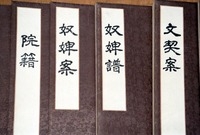 文契案
奴婢譜
奴婢案
院籍